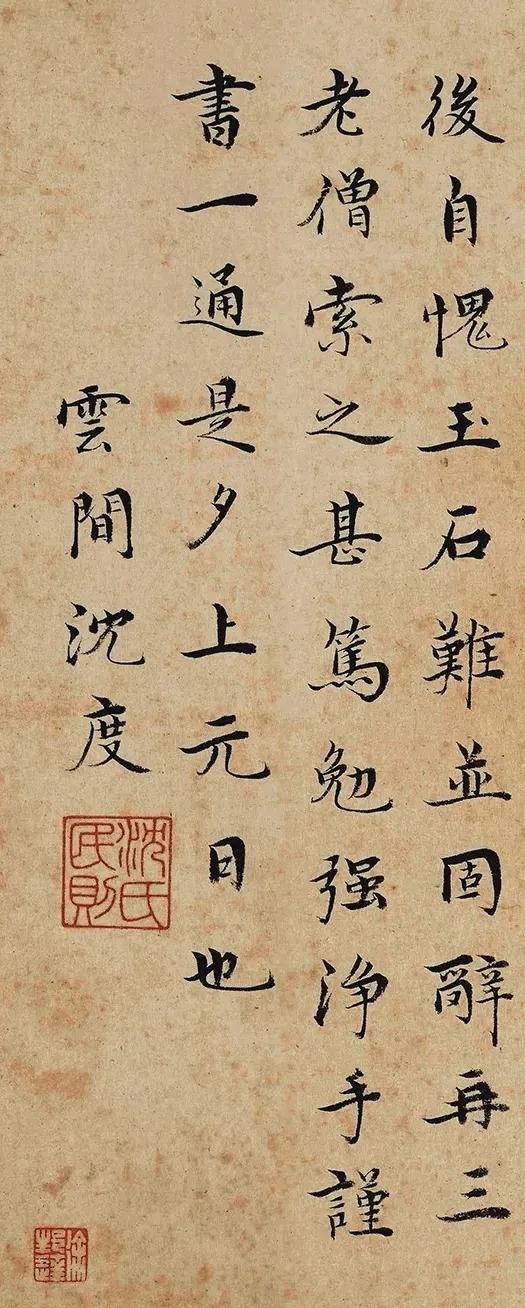 後自愧玉石難並固辭再三
老僧索之甚篤勉强浄手謹
書一通是夕上元日也
雲間沈度
沈氏民則